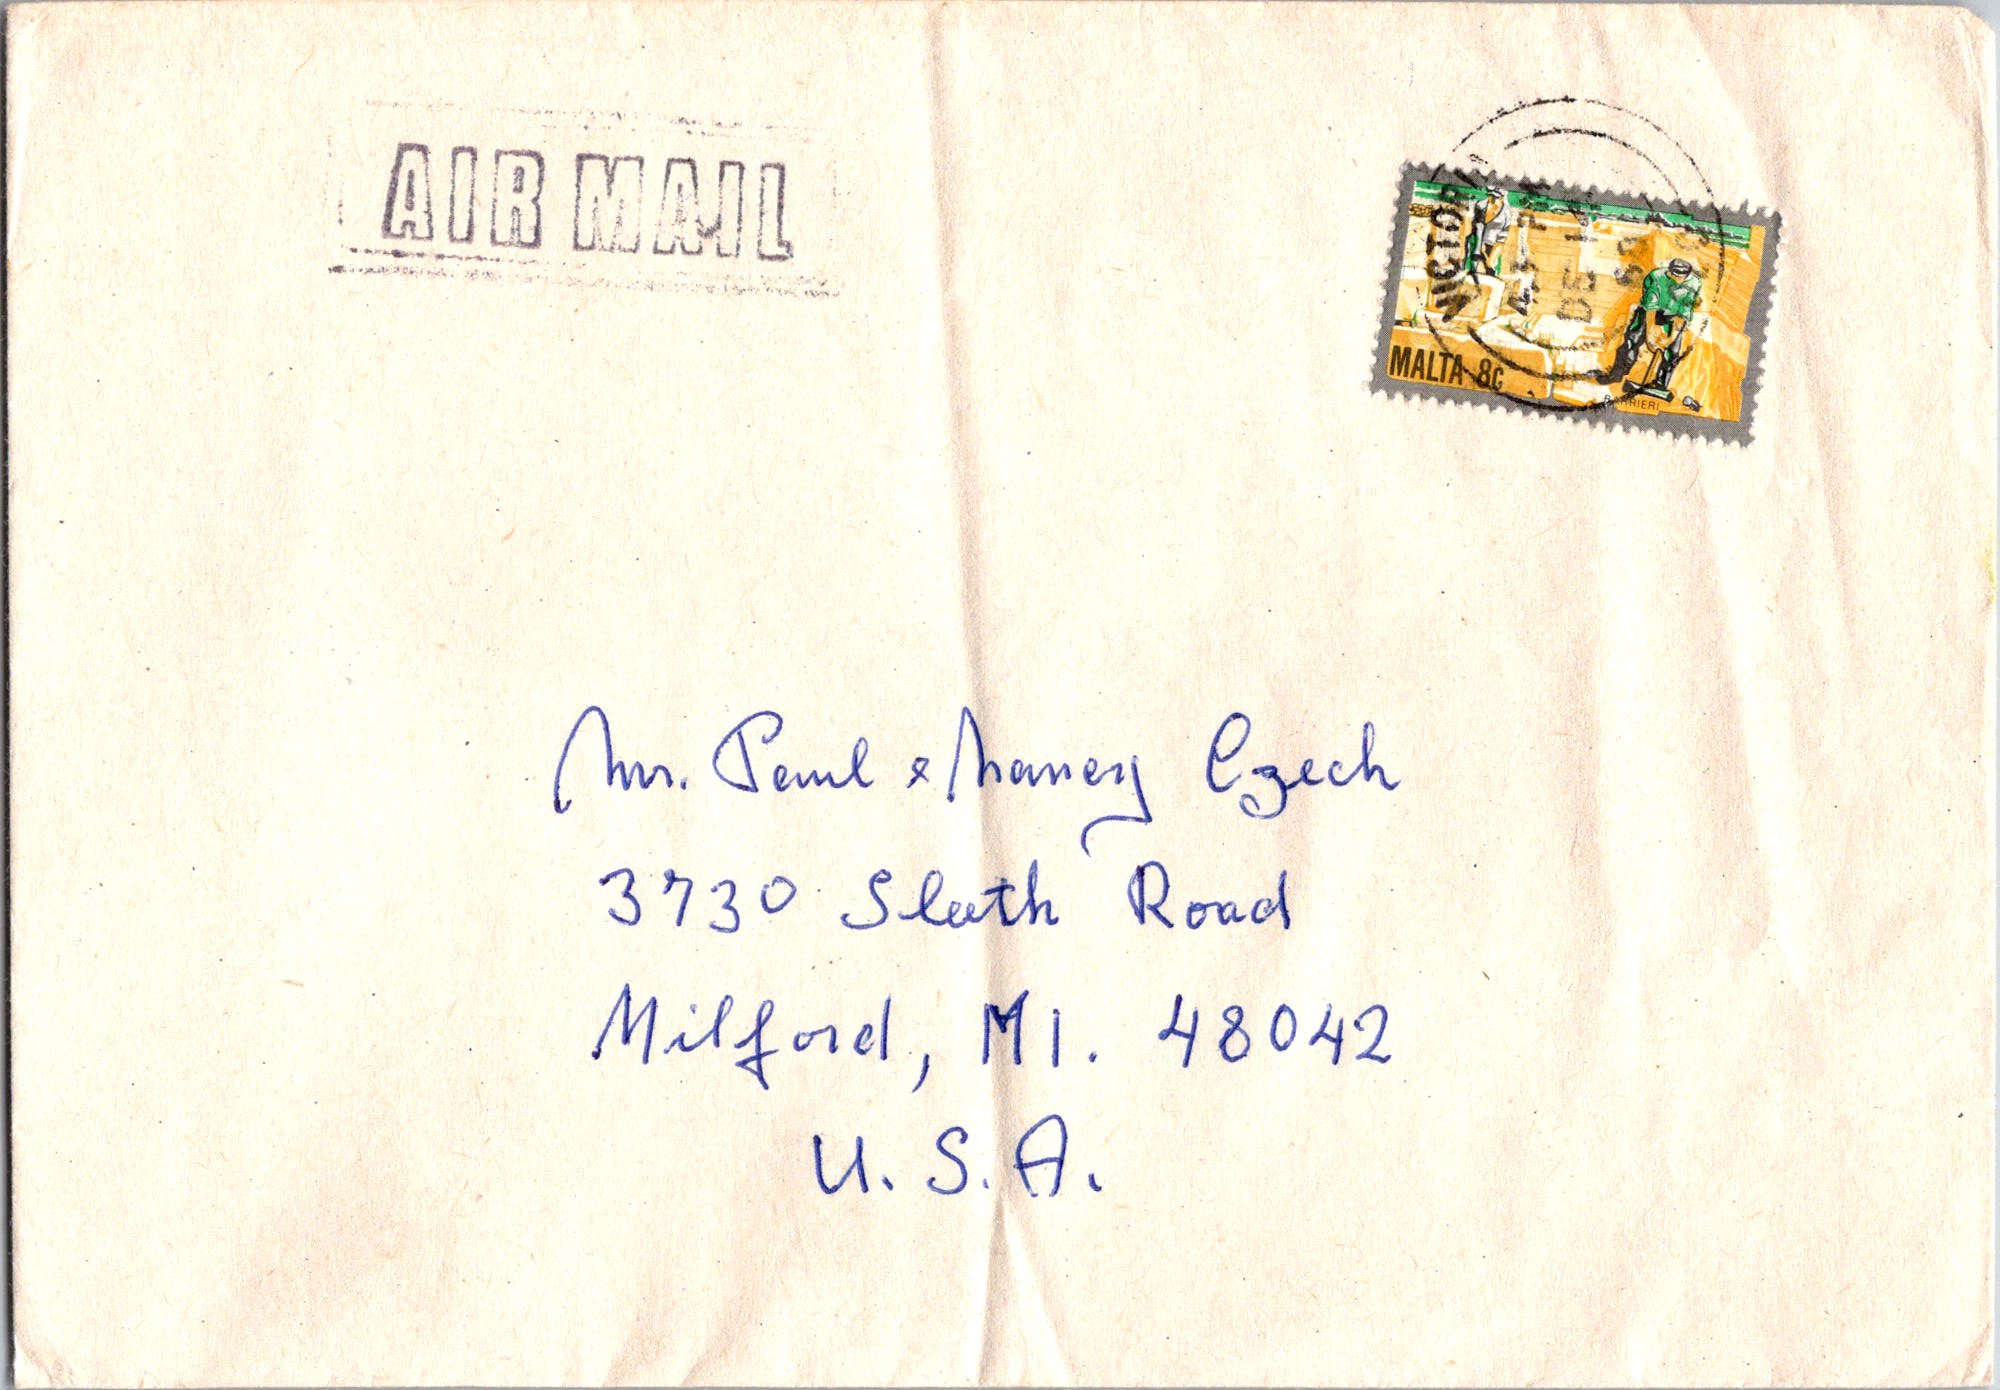 AIR MAIL
VICTORIA
PM
DE 14
MALTA 8c
BARRIERI
Mr. Paul & Nancy Czech
3730 Sleeth Road
Milford, MI. 48042
U.S.A.